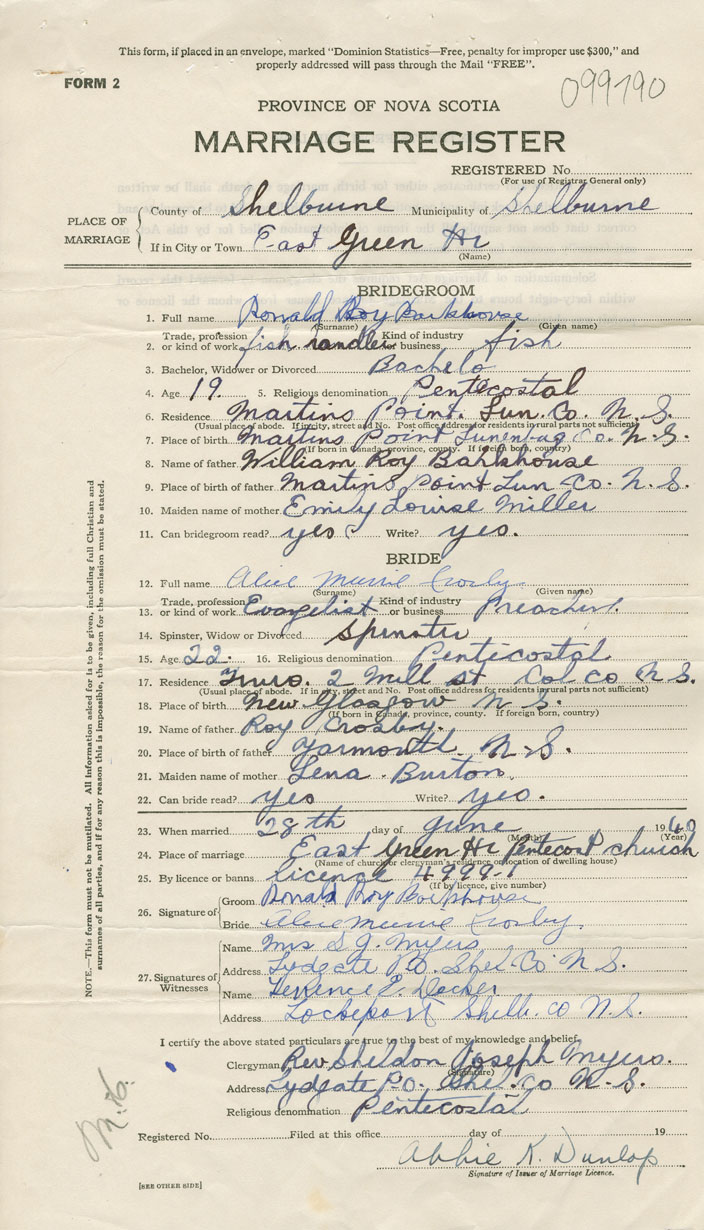 This form, if placed in an envelope, marked "Dominion Statistics—Free, penalty for improper use $300," and
properly addressed will pass through the Mail "FREE".
FORM 2
099790
PROVINCE OF NOVA SCOTIA
MARRIAGE REGISTER
REGISTERED No.
(For use of Registrar General only)
PLACE OF MARRIAGE
County of Shelburne Municipality of Shelburne
If in City or Town East Green Hr
(Name)
BRIDEGROOM
1. Full name Ronald Roy Barkhouse
(Surname) (Given name)
2. Trade, profession or kind of work fish handler Kind of industry or business fish
3. Bachelor, Widower or Divorced Bachelo
4. Age 19. 5. Religious denomination Pentecostal
6. Residence Martins Point. Lun. Co. N. S.
(Usual place of abode. If in city, street and No. Post office address for residents in rural parts not sufficient)
7. Place of birth Martins Point Lunenburg Co. N. S.
(If born in Canada, province, county. If foreign born, country)
8. Name of father William Roy Barkhouse
9. Place of birth of father Martins Point Lun Co. N. S.
10. Maiden name of mother Emily Louise Miller
11. Can bridegroom read? yes Write? yes.
BRIDE
12. Full name Alice Murrie Crosby
(Surname) (Given name)
13. Trade, profession or kind of work Evangelist Kind of industry or business Preacher.
14. Spinster, Widow or Divorced Spinster
15. Age 22. 16. Religious denomination Pentecostal
17. Residence Truro. 2 Mill st Col co N. S.
(Usual place of abode. If in city, street and No. Post office address for residents in rural parts not sufficient)
18. Place of birth New Glasgow N. S.
(If born in Canada, province, county. If foreign born, country)
19. Name of father Roy Crosby.
20. Place of birth of father Yarmouth. N. S.
21. Maiden name of mother Lena Burton.
22. Can bride read? yes Write? yes.
23. When married 28th day of June 1940
(Month) (Year)
24. Place of marriage East Green Hr Pentecost church
(Name of church or clergyman's residence, or location of dwelling house)
25. By licence or banns licence 4999-1
(If by licence, give number)
26. Signature of
Groom Ronald Roy Barkhouse
Bride Alice Murrie Crosby.
27. Signatures of Witnesses
Name Mrs S. J. Myers
Address Lydgate P.O. Shel. Co N. S.
Name Terrence E. Decker
Address Lockeport Shelb. co N.S.
I certify the above stated particulars are true to the best of my knowledge and belief.
Clergyman Rev Sheldon Joseph Myers.
(Signature)
Address Lydgate P.O. Shel. Co N. S.
Religious denomination Pentecostal
Registered No. Filed at this office day of 19
Abbie K. Dunlop
Signature of Issuer of Marriage Licence.
[SEE OTHER SIDE]
NOTE.—This form must not be mutilated. All information asked for is to be given, including full Christian and
surnames of all parties, and if for any reason this is impossible, the reason for the omission must be stated.